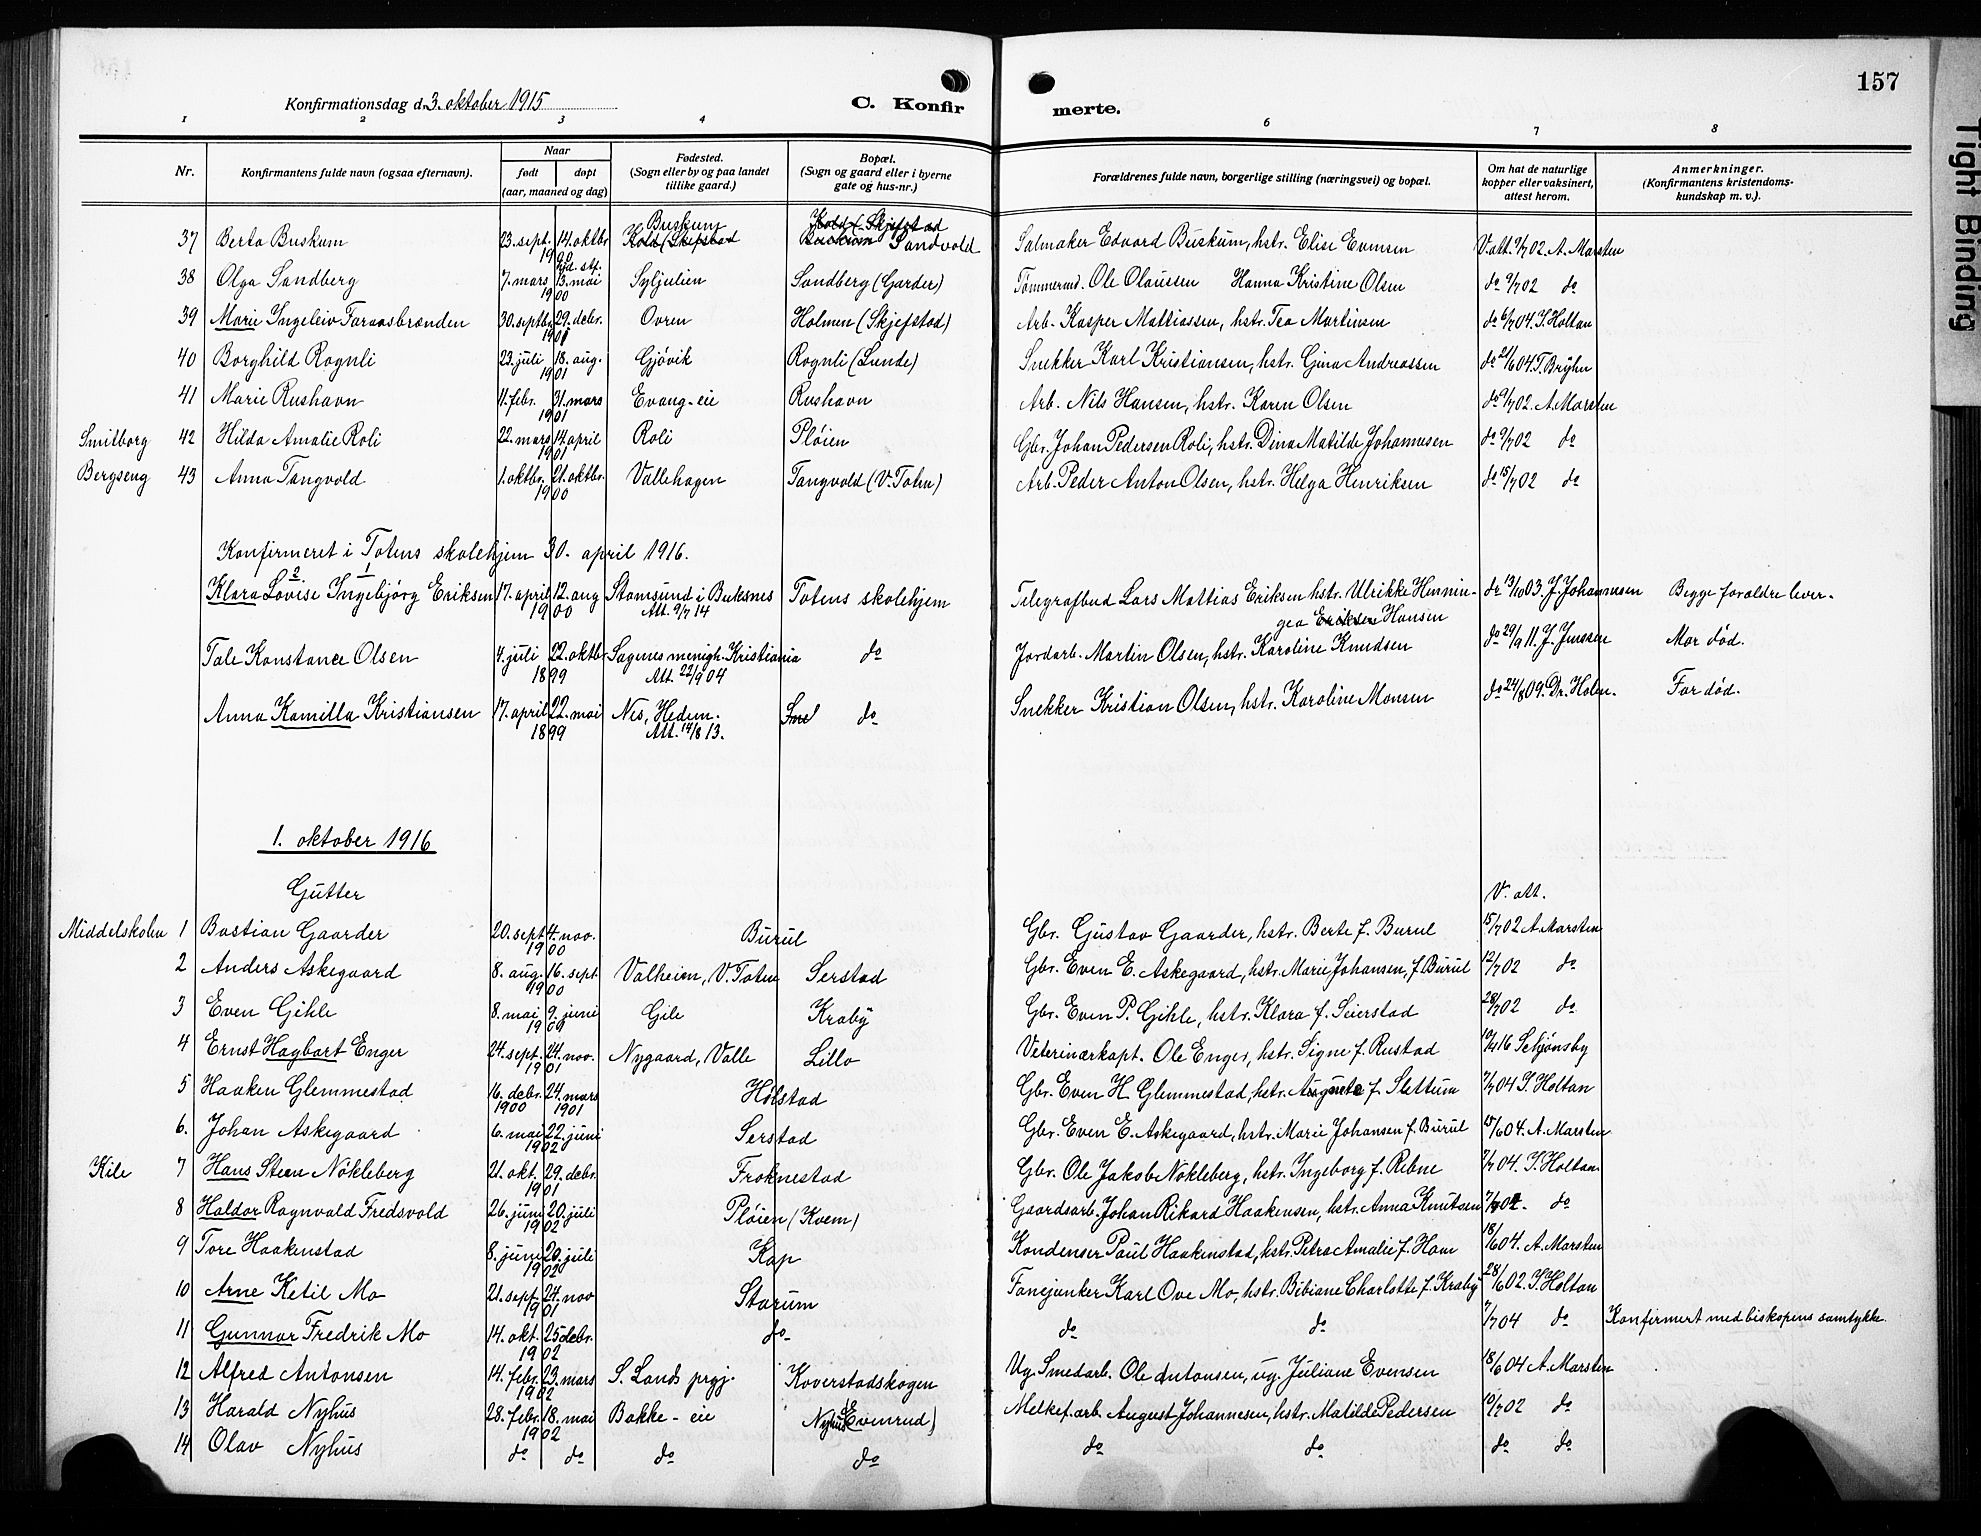 157
Konfirmationsdag d. 3. oktober 1915
C. Konfir
merte.
1 2 3 4 6 7 8
Nr.
Konfirmantens fulde navn (ogsaa efternavn).
Naar
født døpt
(aar, maaned og dag)
Fødested.
(Sogn eller by og paa landet
tillike gaard.)
Bopæl.
(Sogn og gaard eller i byerne
gate og hus-nr.)
Forældrenes fulde navn, borgerlige stilling (næringsvei) og bopæl.
Om hat de naturlige
kopper eller vaksinert,
attest herom.
Anmerkninger.
(Konfirmantens kristendoms-
kundskap m. v.).
37 Berta Buskum 23. sept. 14. oktbr 1900 Buskum Sandvold Salmaker Edvard Buskum, hstr. Elise Evensen V. att. 9/7 02. A. Marsten
38 Olga Sandberg 7. mars 13. mai 1900 Syljulien Sandberg (Garder) Tømmermd. Ole Olaussen Hanna Kristine Olsen do 9/7 02 do
39 Marie Ingeleiv Faraasbrænden 30. septbr. 29. debr. 1901 Ovren Holmen (Skjefstad) Arb. Kasper Mattiassen, hstr. Tea Martinsen do 6/7 04. S. Holtan
40 Borghild Rognli 23. juli 18. aug. 1901 Gjøvik Rognli (Lunde) Snekker Karl Kristiansen, hstr. Gina Andreassen do 21/6 04. T. Bryhn
41 Marie Rushavn 11. febr. 31. mars 1901 Evang-eie Rushavn Arb. Nils Hansen, hstr. Karen Olsen do 9/7 02. A. Marsten
Smitborg 42 Hilda Amalie Roli 22. mars 14. april 1901 Roli Pløien Gbr. Johan Pedersen Roli, hstr. Dina Matilde Johannesen do 9/7 02 do
Bergseng 43 Anna Tangvold 1. oktbr. 21. oktbr. 1900 Vallehagen Tangvold (V. Toten) Arb. Peder Anton Olsen, hstr. Helga Henriksen do 15/7 02 do
Konfirmeret i Totens skolehjem 30. april 1916.
2 1
Klara Lovise Ingebjørg Eriksen 17. april 12. aug 1900 Stamsund i Buksnes Totens skolehjem Telegrafbud Lars Mattias Eriksen hstr. Ulrikke Hennin- do 13/10 03. J. Johannesen Begge forældre lever.
Att. 9/7 14 gea Eriksen Hansen
Tale Konstance Olsen 4. juli 22. oktbr 1899 Sagnes menigh. Kristiania do Jordarb. Martin Olsen, hstr. Karoline Knudsen do 29/9 11. J. Jenssen Mor død.
Att. 22/9 04
Anna Kamilla Kristiansen 17. april 22. mai 1899 Nes, Hedem. do Snekker Kristian Olsen, hstr. Karoline Monsen do 24/8 09. Dr. Holm. Far død.
Att. 14/8 13.
1. oktober 1916
Gutter
V. att.
Middelskolen 1 Bastian Gaarder 20. sept 4. nov. 1900 Burul Gbr. Gustav Gaarder, hstr. Berte f. Burul 15/7 02 A. Marsten
2 Anders Askegaard 8. aug. 16. sept. 1900 Valheim, V. Toten Serstad Gbr. Even E. Askegaard, hstr. Marie Johansen, f. Burul 12/7 02 do
3 Even Gihle 8. mai 9. juni 1900 Gile Kraby Gbr. Even P. Gihle, hstr. Klara f. Seierstad 28/7 02 do
4 Ernst Hagbart Enger 24. sept. 24. nov. 1901 Nygaard, Valle Lillo Veterinærkapt. Ole Enger, hstr. Signe f. Rustad 19/4 16 Schjønsby
5 Haaken Glemmestad 16. debr. 1900 24. mars 1901 Hølstad Gbr. Even H. Glemmestad, hstr. Auguste f. Slettum 7/7 04 S. Holtan
6. Johan Askegaard 6. mai 22. juni 1902 Serstad Gbr. Even E. Askegaard, hstr. Marie Johansen f. Burul 15/6 04. A. Marsten
Kile 7 Hans Steen Nøkleberg 21. okt. 29. debr. 1901 Froknestad Gbr. Ole Jakob Nøkleberg, hstr. Ingeborg f. Ribne 7/7 04. S. Holtan
8 Haldor Ragnvald Fredsvold 26. juni 20. juli 1902 Pløien (Kvem) Gaardsarb. Johan Rikard Haakensen, hstr. Anna Knutsen 7/7 04. do
9 Tore Haakenstad 8. juni 20. juli 1902 Kap Kondenser Paul Haakenstad, hstr. Petra Amalie f. Ham 18/6 04. A. Marsten
10 Arne Ketil Mo 21. sept. 24. nov 1901 Starum Fanejunker Karl Ove Mo, hstr. Bibiane Charlotte f. Kraby 28/6 02. S. Holtan
11 Gunnar Fredrik Mo 14. okt. 25 debr. 1902 do do do 7/7 04 do Konfirmert med biskopens samtykke.
12 Alfred Antonsen 14. febr. 23. mars 1902 S. Lands prgj. Koverstadskogen Ug. Smedarb. Ole Antonsen, ug. Juliane Evensen 18/6 04 A. Marsten
13 Harald Nyhus 28. febr. 18. mai 1902 Bakke-eie Nyhus (Evenrud) Melkef. arb. August Johannesen, hstr. Matilde Pedersen 10/7 02 do
14 Olav Nyhus do do do do do do do do
Tight Binding